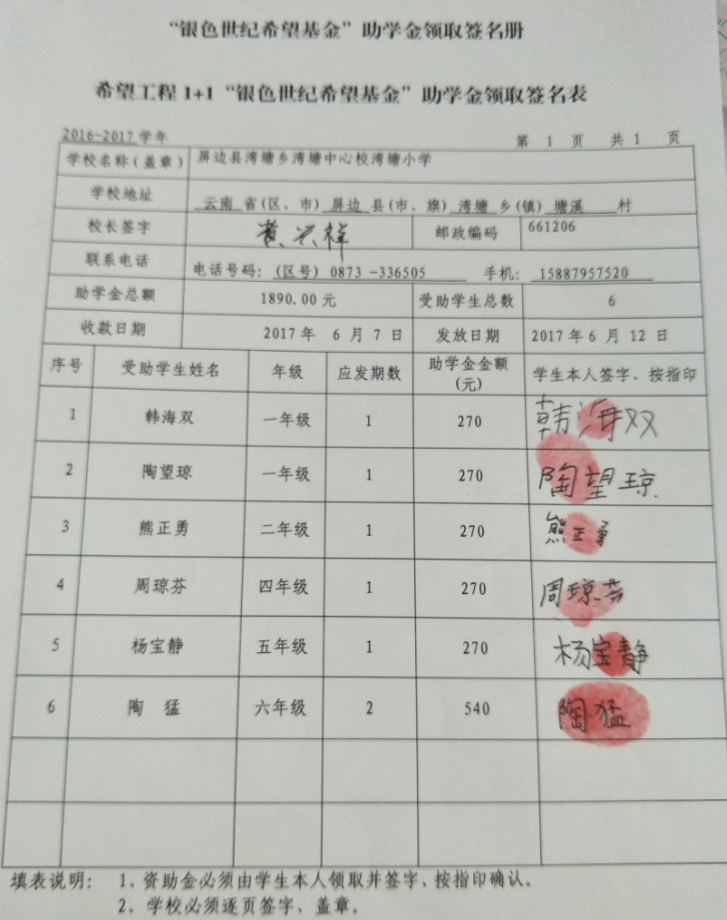 “银色世纪希望基金”助学金领取签名册
希望工程 1+1 “银色世纪希望基金”助学金领取签名表
2016-2017 学年 第 1 页 共 1 页
学校名称(盖章) 屏边县湾塘乡湾塘中心校湾塘小学
学校地址 云南 省(区、市) 屏边 县(市、旗) 湾塘 乡(镇) 塘溪 村
校长签字 黄兴祥 邮政编码 661206
联系电话 电话号码: (区号) 0873 -336505 手机: 15887957520
助学金总额 1890.00 元 受助学生总数 6
收款日期 2017 年 6 月 7 日 发放日期 2017 年 6 月 12 日
序号 受助学生姓名 年级 应发期数 助学金金额(元) 学生本人签字、按指印
1 韩海双 一年级 1 270 韩海双
2 陶望琼 一年级 1 270 陶望琼
3 熊正勇 二年级 1 270 熊正勇
4 周琼芬 四年级 1 270 周琼芬
5 杨宝静 五年级 1 270 杨宝静
6 陶 猛 六年级 2 540 陶猛
填表说明: 1、资助金必须由学生本人领取并签字、按指印确认。
2、学校必须逐页签字、盖章。